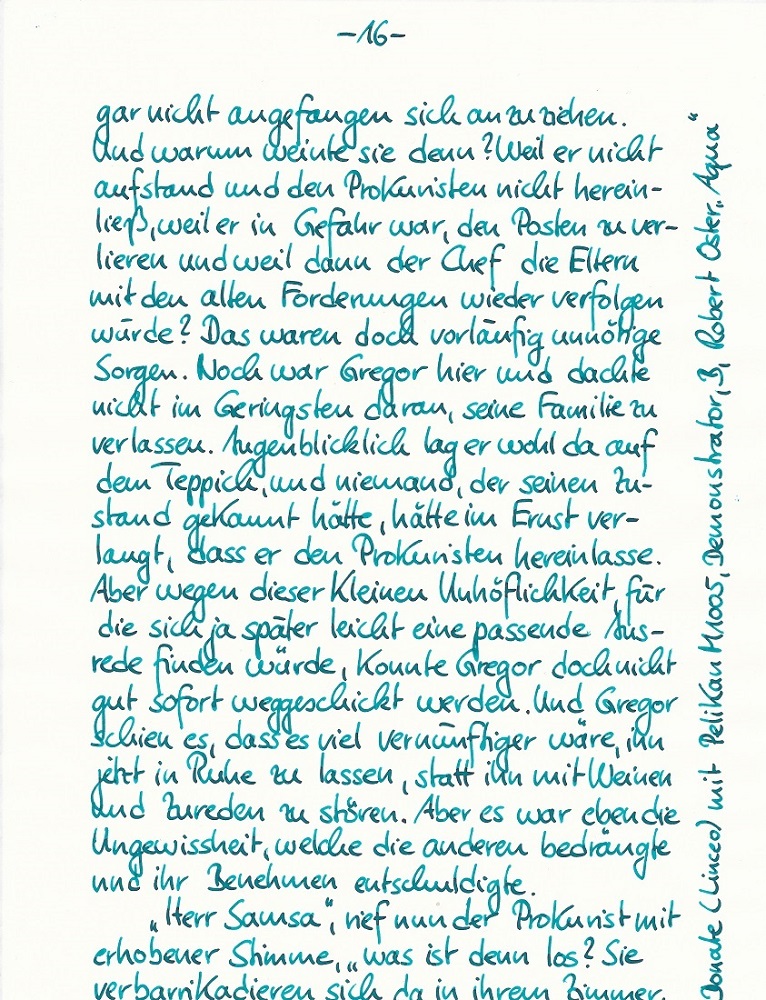 -16-
gar nicht angefangen sich anzuziehen.
Und warum weinte sie denn? Weil er nicht
aufstand und den Prokuristen nicht herein-
ließ, weil er in Gefahr war, den Posten zu ver-
lieren und weil dann der Chef die Eltern
mit den alten Forderungen wieder verfolgen
würde? Das waren doch vorläufig unnötige
Sorgen. Noch war Gregor hier und dachte
nicht im Geringsten daran, seine Familie zu
verlassen. Augenblicklich lag er wohl da auf
dem Teppich, und niemand, der seinen Zu-
stand gekannt hätte, hätte im Ernst ver-
langt, dass er den Prokuristen hereinlasse.
Aber wegen dieser kleinen Unhöflichkeit, für
die sich ja später leicht eine passende Aus-
rede finden würde, konnte Gregor doch nicht
gut sofort weggeschickt werden. Und Gregor
schien es, dass es viel vernünftiger wäre, ihn
jetzt in Ruhe zu lassen, statt ihn mit Weinen
und Zureden zu stören. Aber es war eben die
Ungewissheit, welche die anderen bedrängte
und ihr Benehmen entschuldigte.
„Herr Samsa", rief nun der Prokurist mit
erhobener Stimme, „was ist denn los? Sie
verbarrikadieren sich da in ihrem Zimmer,
Donate (Linceo) mit Pelikan M1005, Demonstrator, B, Robert Oster „Aqua"